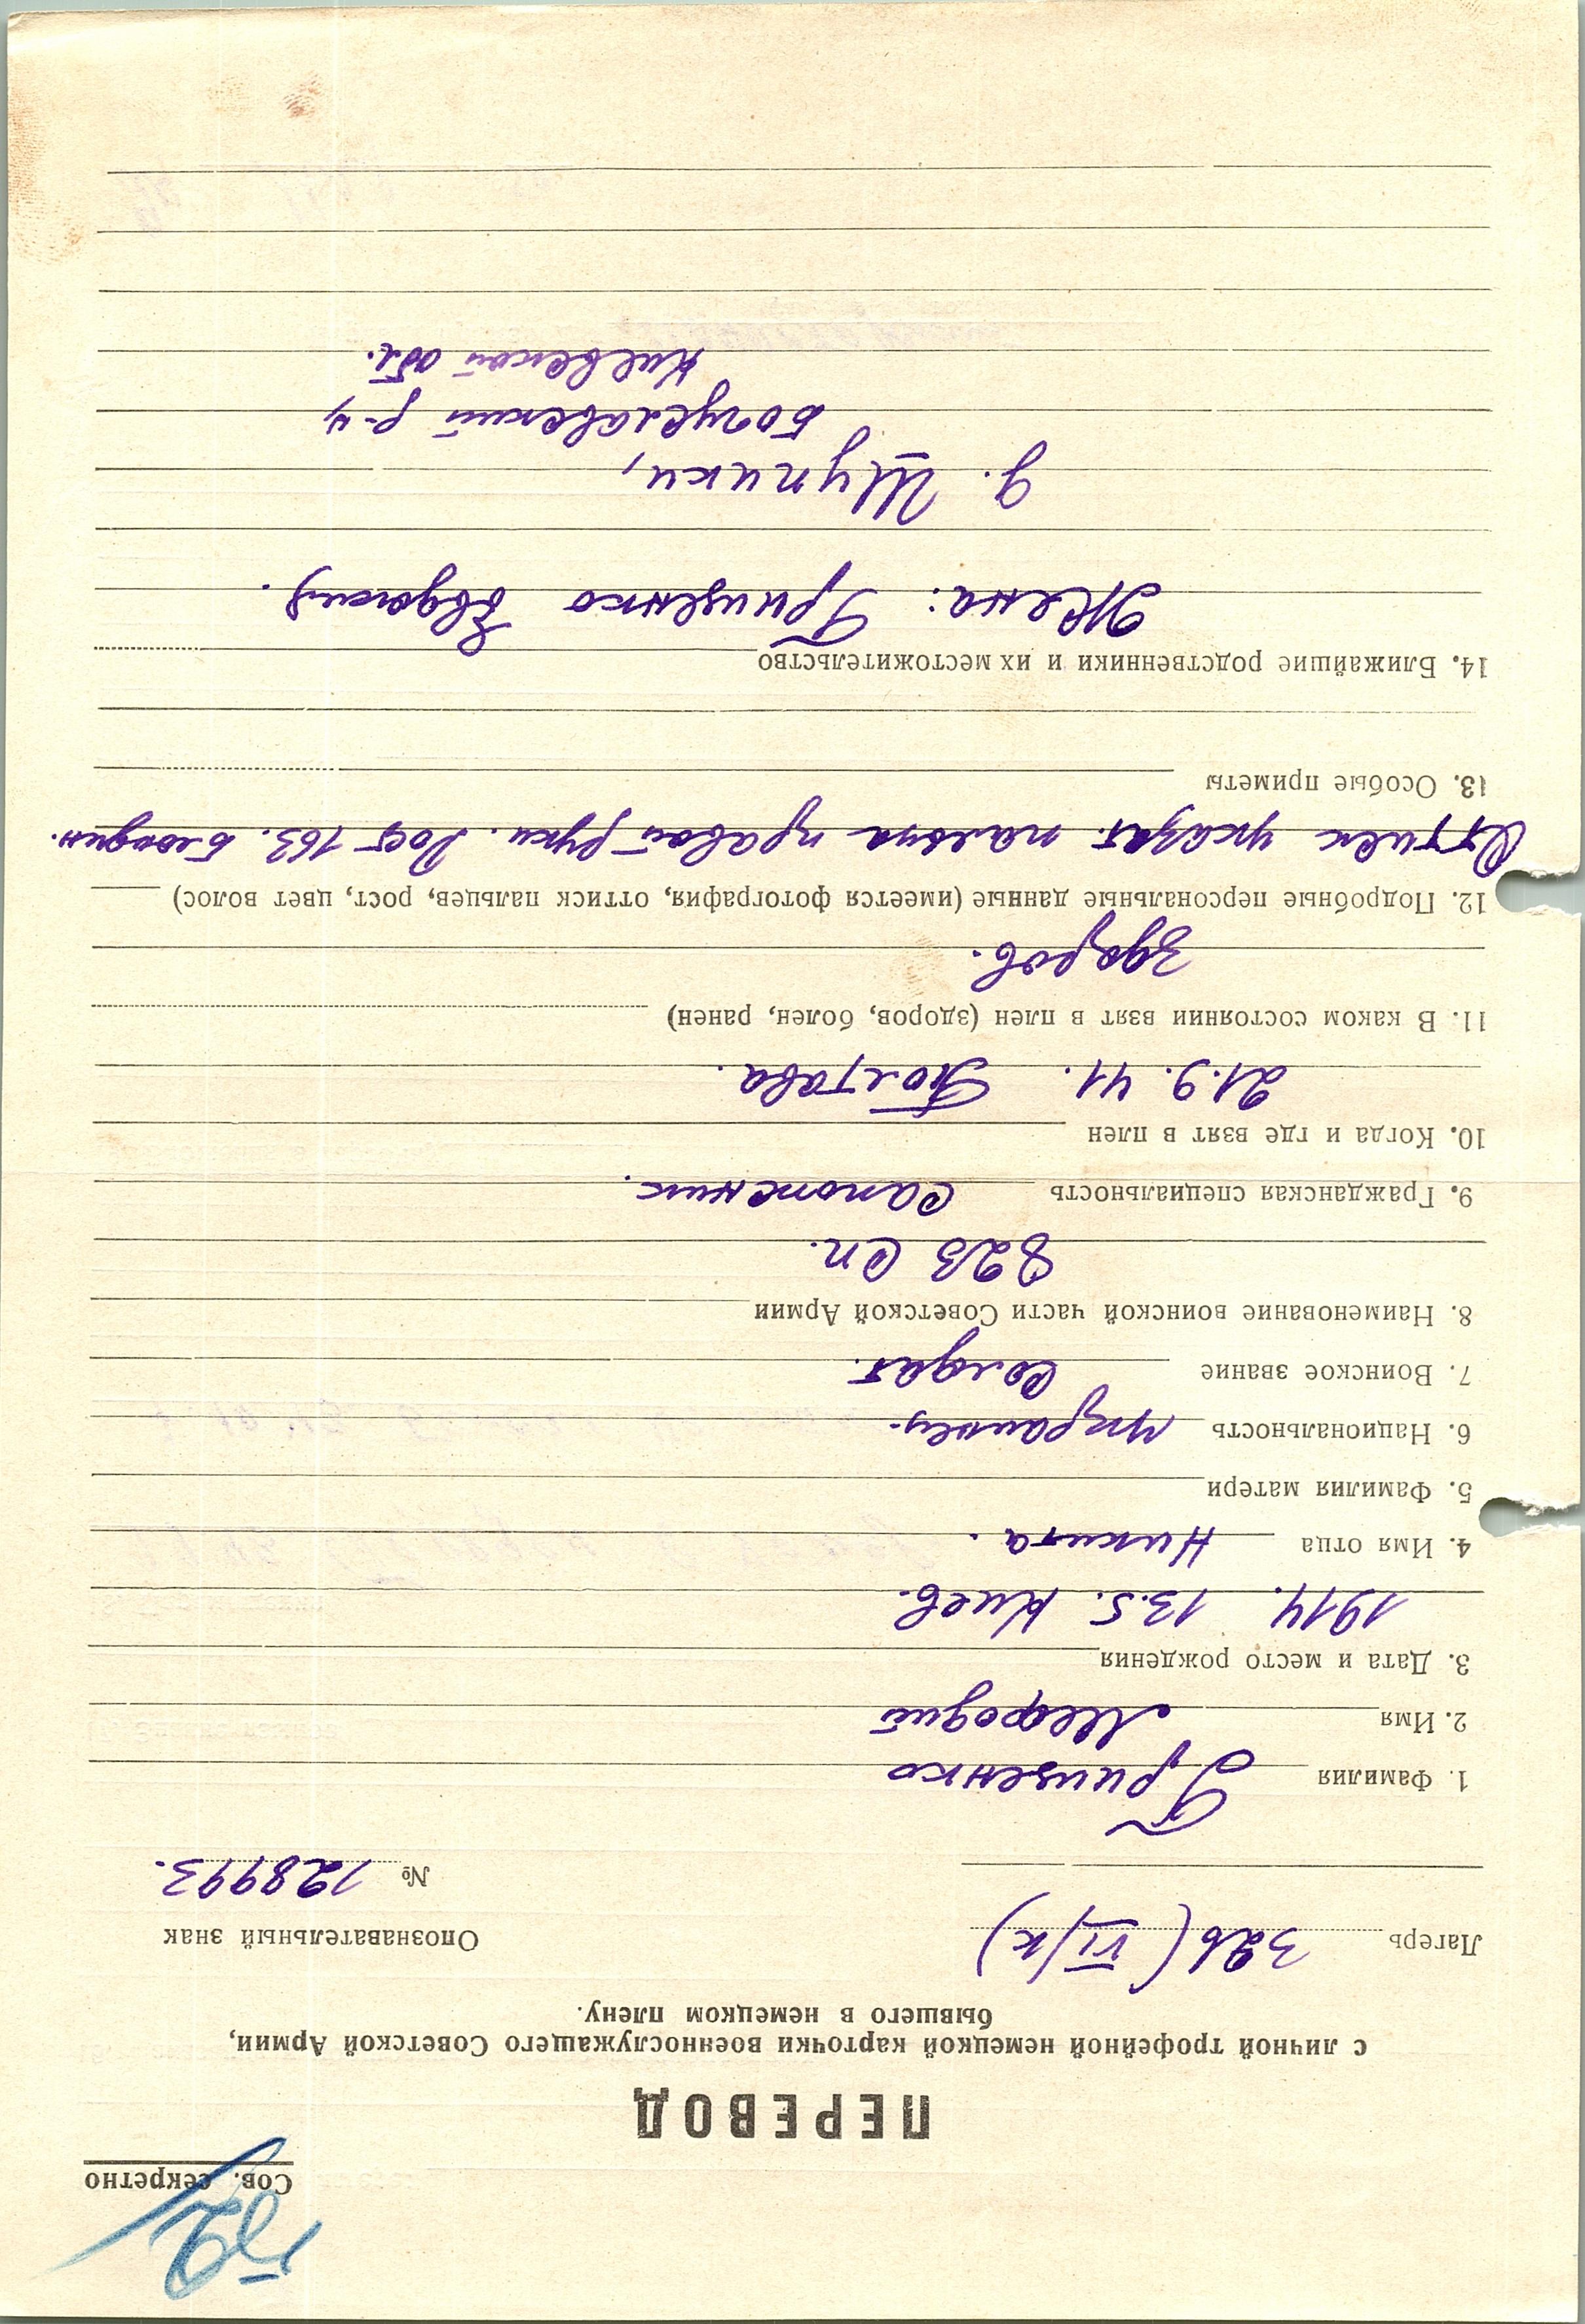 Сов. секретно
ПЕРЕВОД
с личной трофейной немецкой карточки военнослужащего Советской Армии,
бывшего в немецком плену.
Лагерь 326 (VI/к) Опознавательный знак
№ 128993.
1. Фамилия Грищенко
2. Имя Мефодий
3. Дата и место рождения
1914. 13.5. Киев.
4. Имя отца Никита.
5. Фамилия матери
6. Национальность украинец.
7. Воинское звание Солдат.
8. Наименование воинской части Советской Армии
823 Сп.
9. Гражданская специальность сапожник.
10. Когда и где взят в плен
21.9.41. Полтава.
11. В каком состоянии взят в плен (здоров, болен, ранен)
Здоров.
12. Подробные персональные данные (имеется фотография, оттиск пальцев, рост, цвет волос)
Оттиск указат. пальца правой руки. Рост 163. Блондин.
13. Особые приметы
14. Ближайшие родственники и их местожительство
Жена: Грищенко Евдокия.
д. Шупики,
Богуславский р-н
Киевской обл.